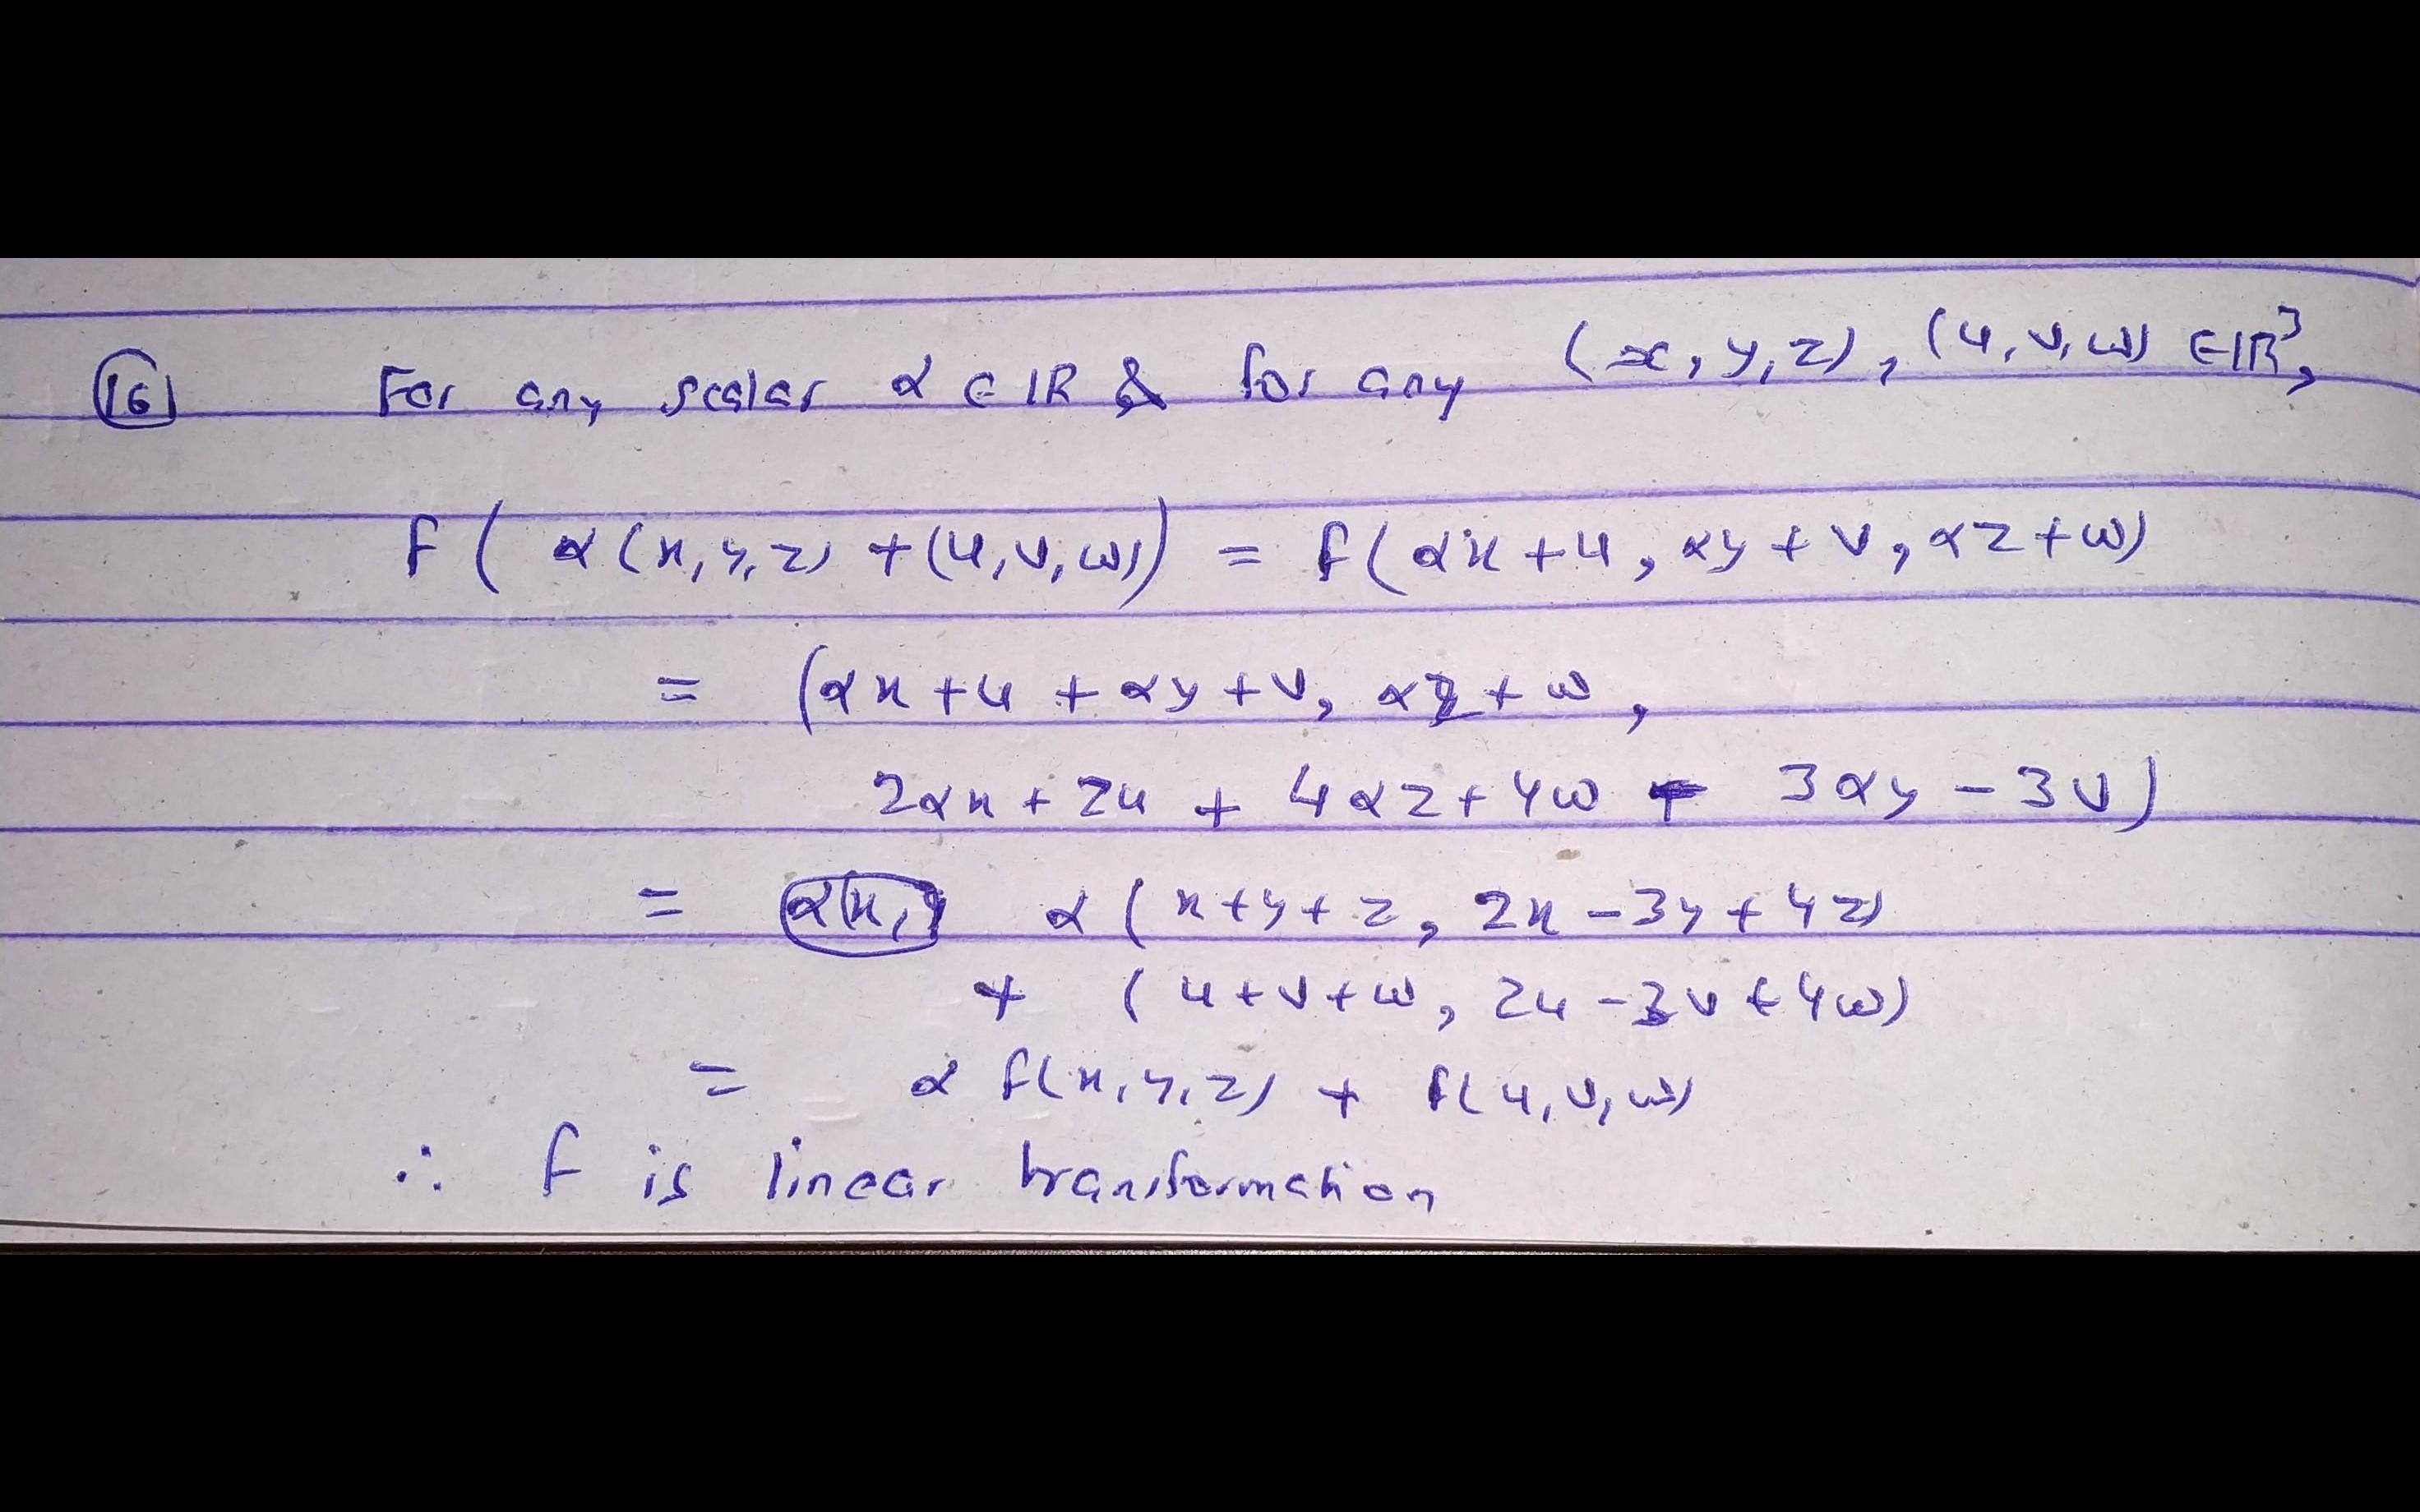 (16) For any scalar α ∈ IR & for any (x, y, z), (u, v, w) ∈ IR³,
f ( α(x, y, z) + (u, v, w)) = f(αx + u, αy + v, αz + w)
= (αx + u + αy + v, αz + w,
2αx + 2u + 4αz + 4w - 3αy - 3v)
= α(x, y α (x + y + z, 2x - 3y + 4z)
+ (u + v + w, 2u - 3v + 4w)
= α f(x, y, z) + f(u, v, w)
∴ f is linear transformation